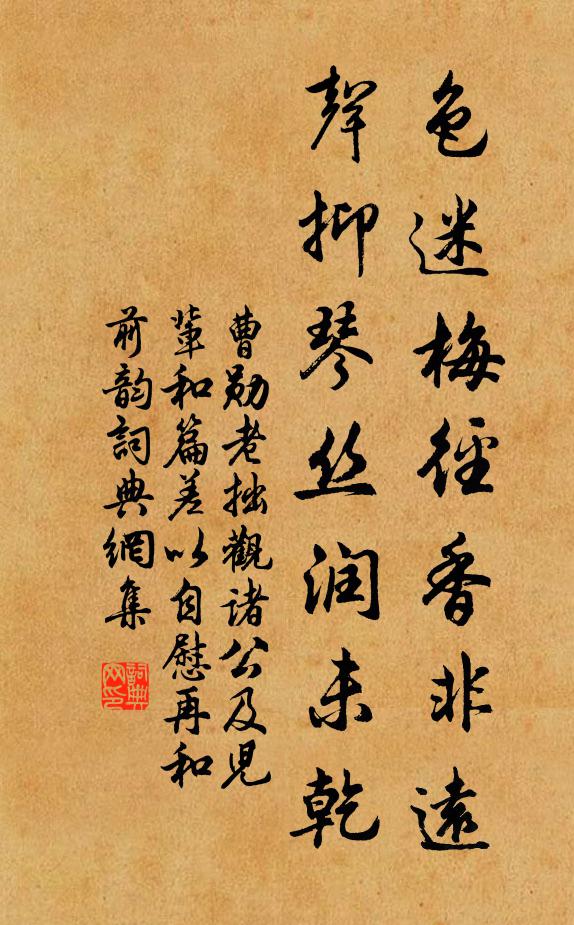 色迷梅徑香非遠
聲抑琴丝润未乾
曹勋老拙觀诸公及児
輩和篇差以自慰再和
前韵詞典網集
詞典
网印